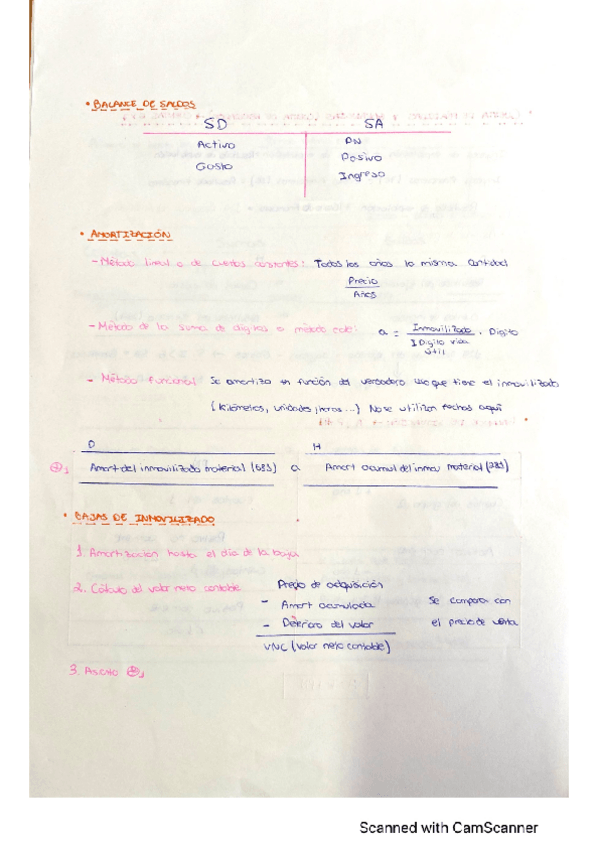 • BALANCE DE SALDOS
SD SA
Activo PN
Gasto Pasivo
Ingreso
• AMORTIZACIÓN
- Método lineal o de cuotas constantes: Todos los años la misma cantidad
Precio
Años
- Método de la suma de dígitos o método cole: a = Inmovilizado . Digito
Σ Digito vida
útil
- Método Funcional Se amortiza en función del verdadero uso que tiene el inmovilizado
(Kilómetros, unidades, horas...) No se utilizan fechas aquí
D H
Amort del inmovilizado material (681) a Amort acumul del inmov material (281)
• BAJAS DE INMOVILIZADO
1. Amortización hasta el día de la baja
2. Cálculo del valor neto contable: Precio de adquisición
- Amort acumulada Se compara con
- Deterioro del valor el precio de venta
VNC (valor neto contable)
3. Asiento
Scanned with CamScanner